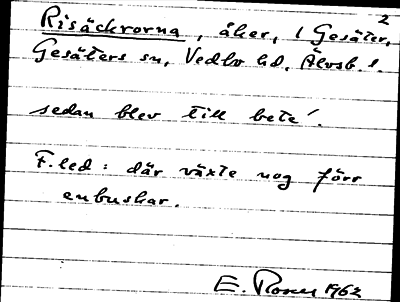 2
Risäckrorna, åker, 1 Gesäter,
Gesäters sn, Vedbo hd, Älvsb. l.
sedan blev till bete'.
F.led: där växte nog förr
enbuskar.
E. Rosen 1962